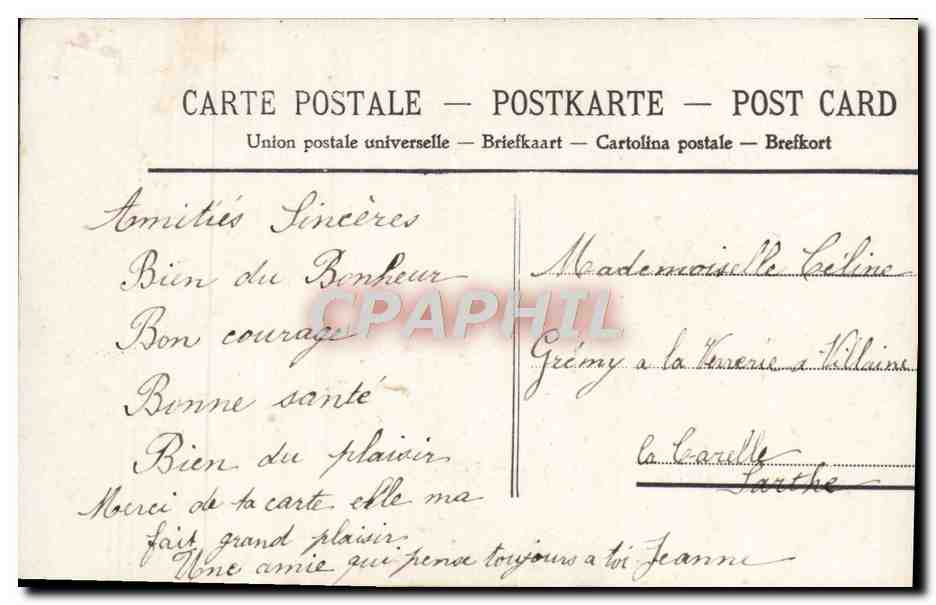 CARTE POSTALE — POSTKARTE — POST CARD
Union postale universelle — Briefkaart — Cartolina postale — Brefkort
Amitiés Sincères
Bien du Bonheur
Bon courage
Bonne santé
Bien du plaisir
Merci de ta carte elle ma
fait grand plaisir
Une amie qui pense toujours a toi Jeanne
Mademoiselle Céline
Grémy a la Verrerie a Villaine
la Carelle
Sarthe
CPAPHIL